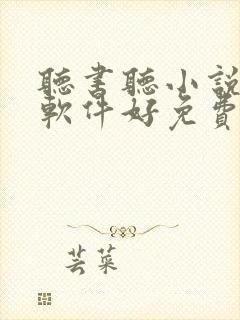 聽書聽小說
軟件好免費
芸菜